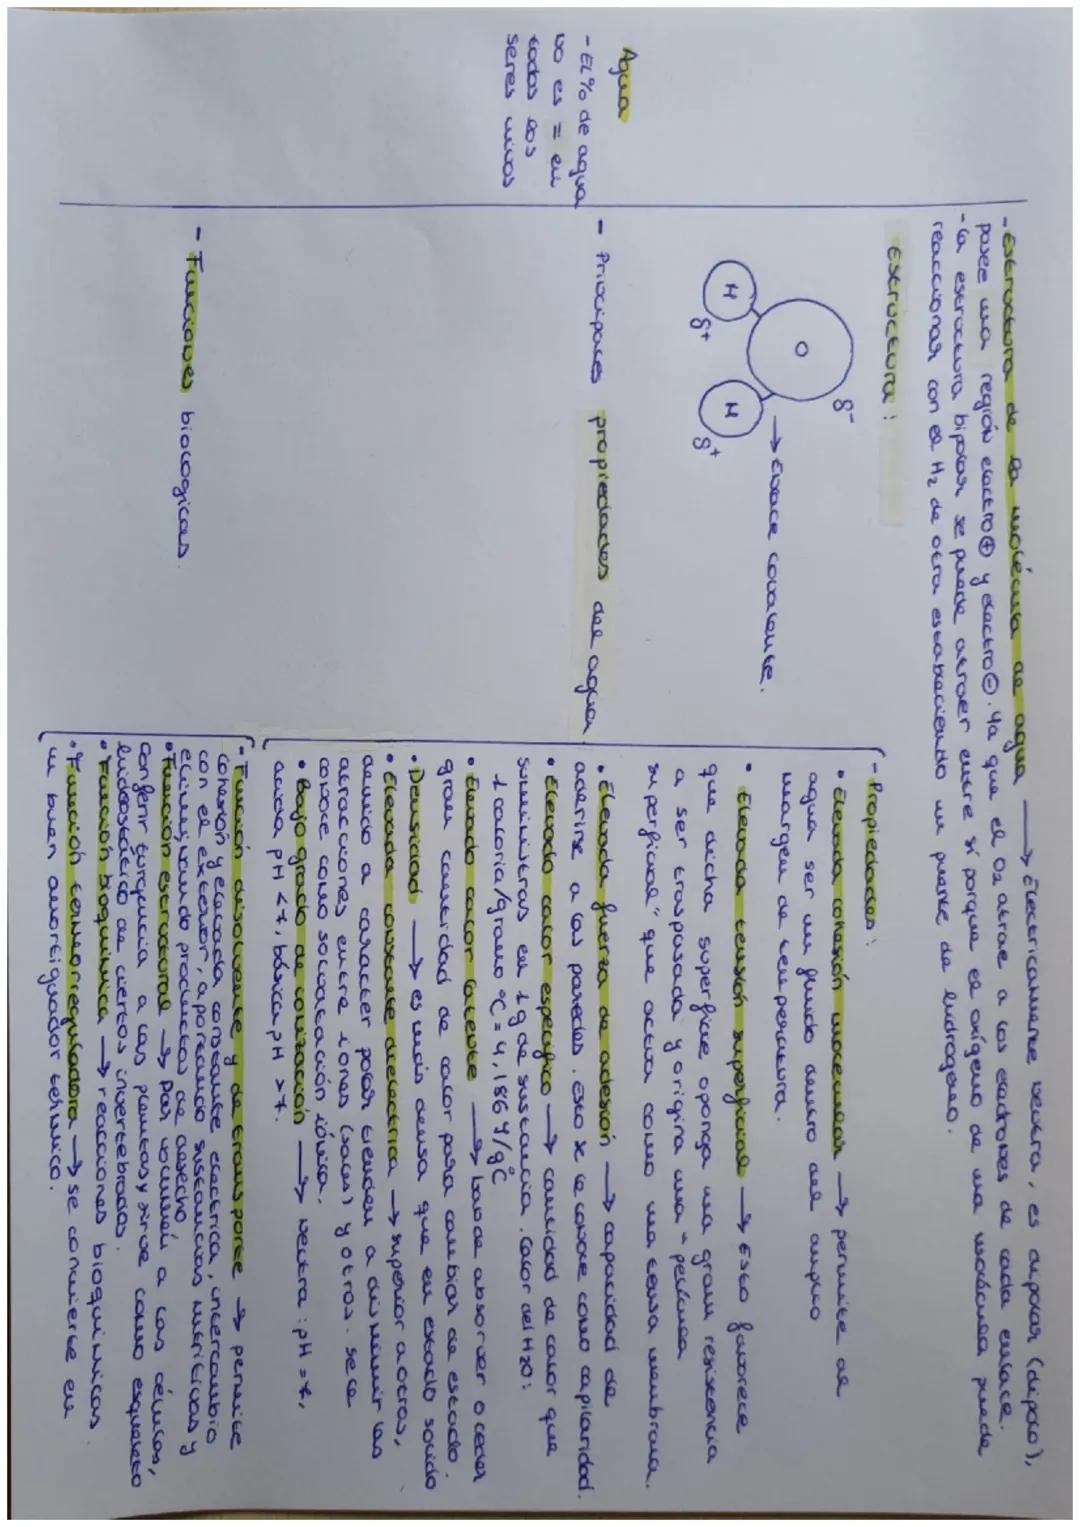 Agua
- El % de agua
no es = en
todos los
seres vivos
- Estructura de la molécula de agua → Eléctricamente neutra, es dipolar (dipolo),
posee una región electro⊕ y electro⊖. Ya que el O2 atrae a los electrones de cada enlace.
- La estructura bipolar se puede atraer entre sí porque el oxígeno de una molécula puede
reaccionar con el H2 de otra estableciendo un puente de hidrógeno.
Estructura:
δ-
O
→ Enlace covalente.
H
H
δ+
δ+
- Principales propiedades del agua
- Propiedades:
• Elevada cohesión molecular → permite al
agua ser un fluido dentro del amplio
margen de temperatura.
• Elevada tensión superficial → Esto favorece
que dicha superficie oponga una gran resistencia
a ser traspasada y origina una "película
superficial" que actúa como una tensa membrana.
• Elevada fuerza de adesión → capacidad de
aderirse a las paredes. Esto se le conoce como capilaridad.
• Elevado calor específico → cantidad de calor que
suministras en 1g de sustancia. Calor del H2O:
1 caloría/gramo °C = 4,186 Y/g°C
• Elevado calor latente → han de absorver o ceder
gran cantidad de calor para cambiar de estado.
• Densidad → es más densa que en estado solido
• Elevada constante dielectrica → superior a otros,
devido a caracter polar tienden a disminuir las
atracciones entre iones (sales) y otros. Se le
conoce como solvatación iónica.
• Bajo grado de ionización → neutra: pH = 7,
acida pH < 7, básica pH > 7.
- Funciones biologicas.
• Función disolvente y de transporte → permite
cohesión y elevada constante electrica, intercambio
con el exterior, aportando sustancias nutritivas y
eliminando productos de desecho
• Función estructural → Dar volumen a las células,
conferir turgencia a las plantas y sirve como esqueleto
hidrostático de ciertos invertebrados.
• Función bioquimica → reacciones bioquimicas.
• Función termorreguladora → se convierte en
un buen amortiguador térmico.